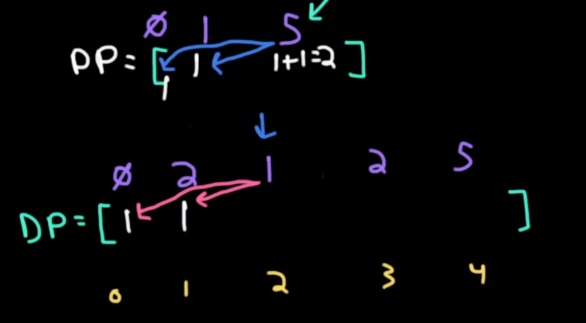 ∅ 1 5
DP = [ 1 1 1+1=2 ]
∅ 2 1 2 5
DP = [ 1 1 ]
0 1 2 3 4